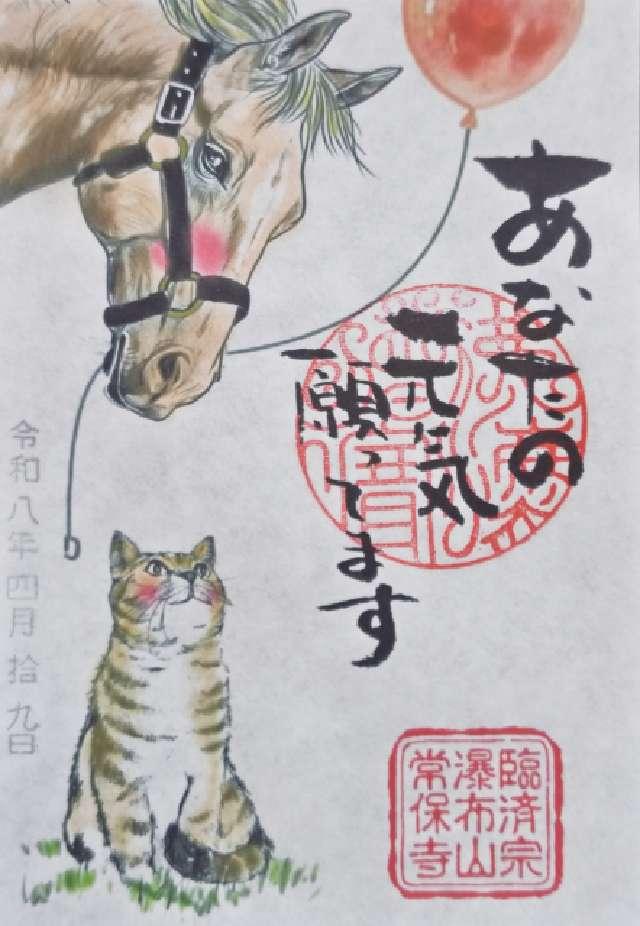 あなたの
元気
願ってます
令和八年四月拾九日
臨済宗
瀑布山
常保寺